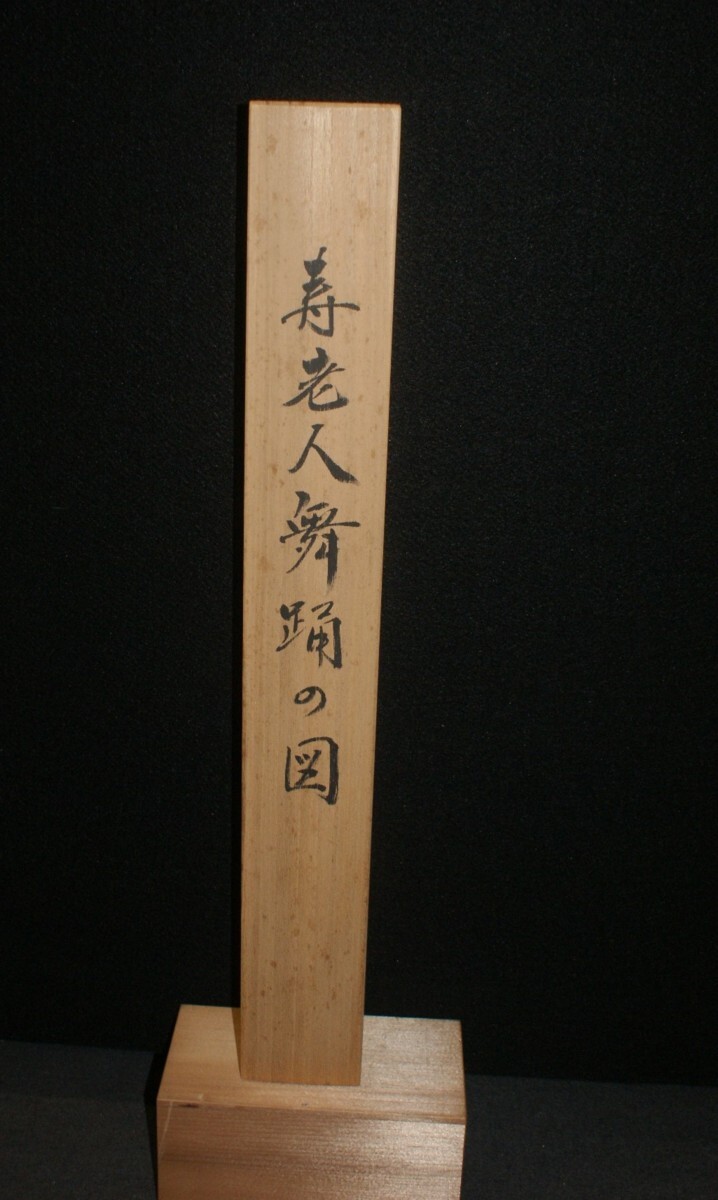 寿老人舞踊の図